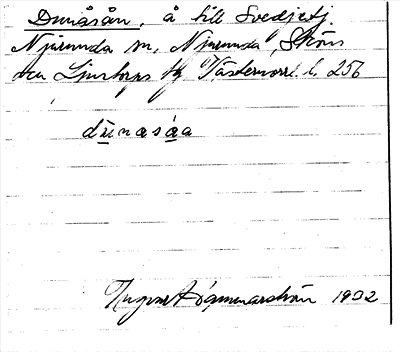 Dunåsån, å till Svedjesj.
Njurunda sn, Njurunda, Sköns
och Ljustorps tg Västernorrl. l. 256
dunasåa
Hammarström 1932